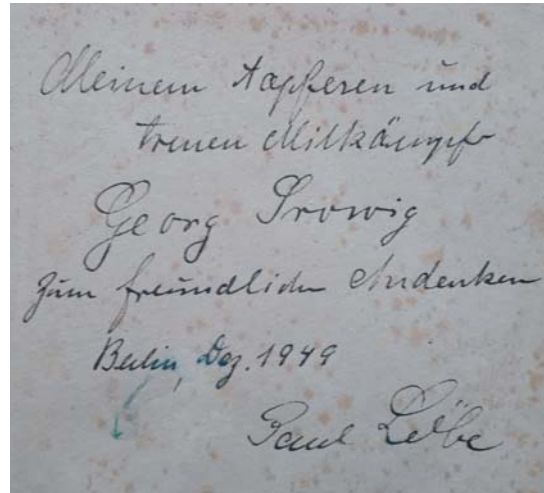 Meinem tapferen und
treuen Mitkämpfer
Georg Srowig
zum freundlichen Andenken
Berlin, Dez. 1949
Paul Löbe